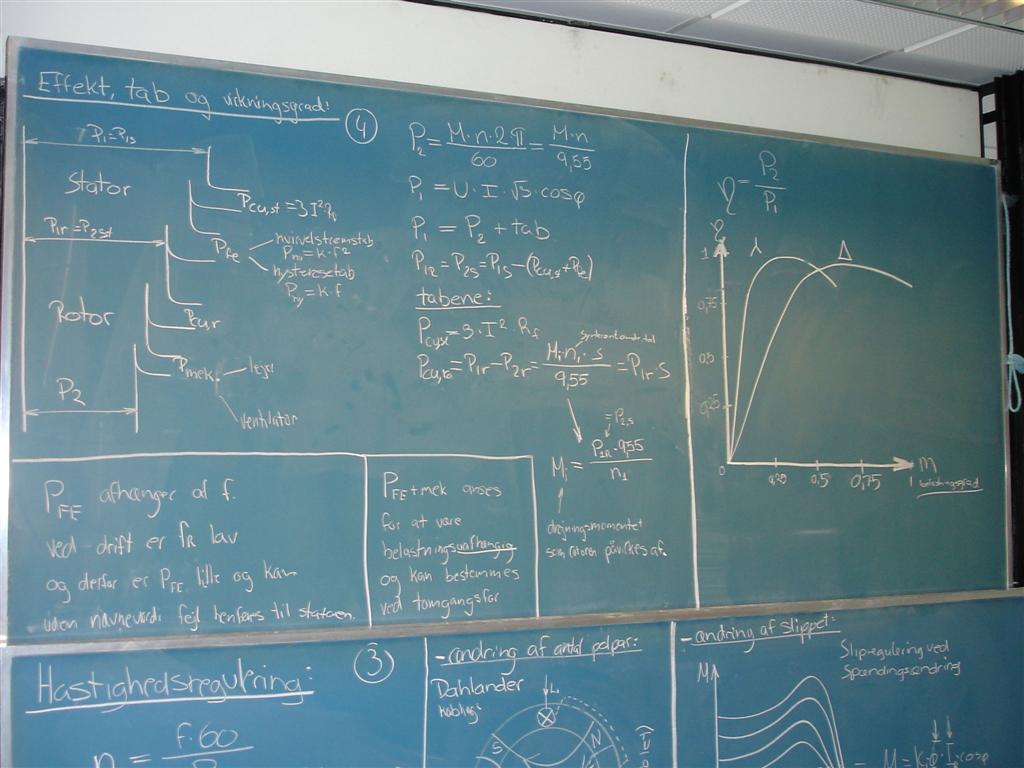 Effekt, tab og virkningsgrad:
4
P1=P1s
Stator
Pcu,st = 3I²·Rf
P1r=P2st
PFe
hvirvelstrømstab
Phv=k·f²
hysteresetab
Phy=k·f
Rotor
Pcu,r
Pmek.
leje
ventilator
P2
P2 = M·n·2π/60 = M·n/9,55
P1 = U·I·√3·cosφ
P1 = P2 + tab
P1R=P2S=P1S-(Pcu,s+PFe)
tabene:
Pcust=3·I²·Rf
Pcu,ro=P1r-P2r= Mi·n1·s/9,55 =P1r·s
=P2,s
Mi = P1R·9,55/n1
drejningsmomentet
som rotoren påvirkes af.
η = P2/P1
η
1
0,75
0,5
0,25
0
λ
Δ
0,25 0,5 0,75 1 M
belastningsgrad
PFE afhænger af f.
ved drift er fR lav
og derfor er PFE lille og kan
uden nævneværdi fejl henføres til statoren.
PFE+mek anses
for at være
belastningsuafhængig
og kan bestemmes
ved tomgangsfor
Hastighedsregulering:
3
n = f·60
P
-ændring af antal polpar:
Dahlander
L1
S
N
-ændring af slippet:
M
Slipregulering ved
Spændingsændring